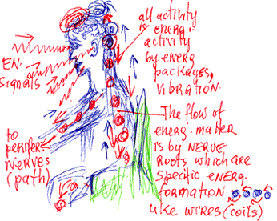 all activity
is energ.
activity
by energ
packages,
vibration.
EN.
signals
The flow of
energ. matter
is by NERVE
ROOTS which are
specific energ.
formation
like WIRES (coils)
to
NERVES
(path)